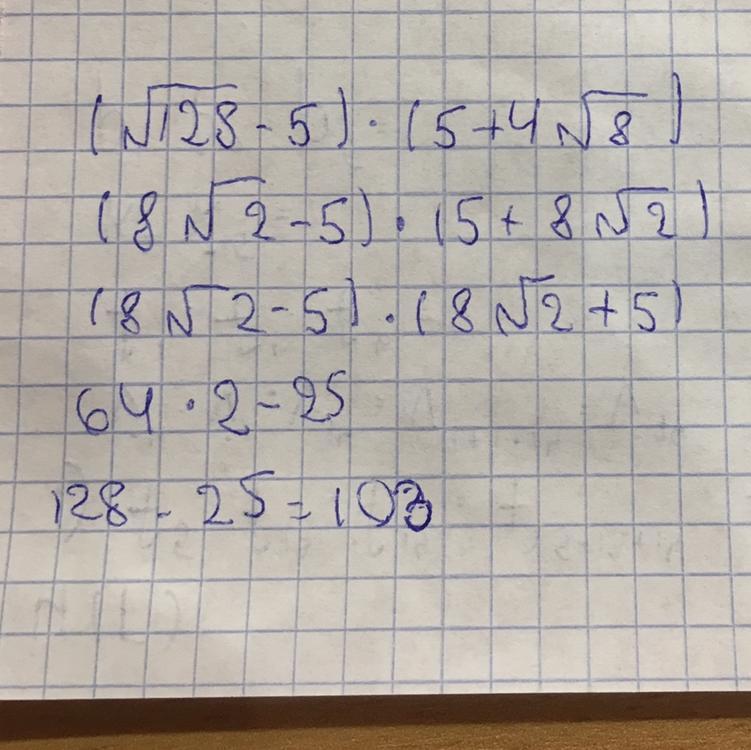 (√128 - 5) · (5 + 4√8)
(8√2 - 5) · (5 + 8√2)
(8√2 - 5) · (8√2 + 5)
64 · 2 - 25
128 - 25 = 103